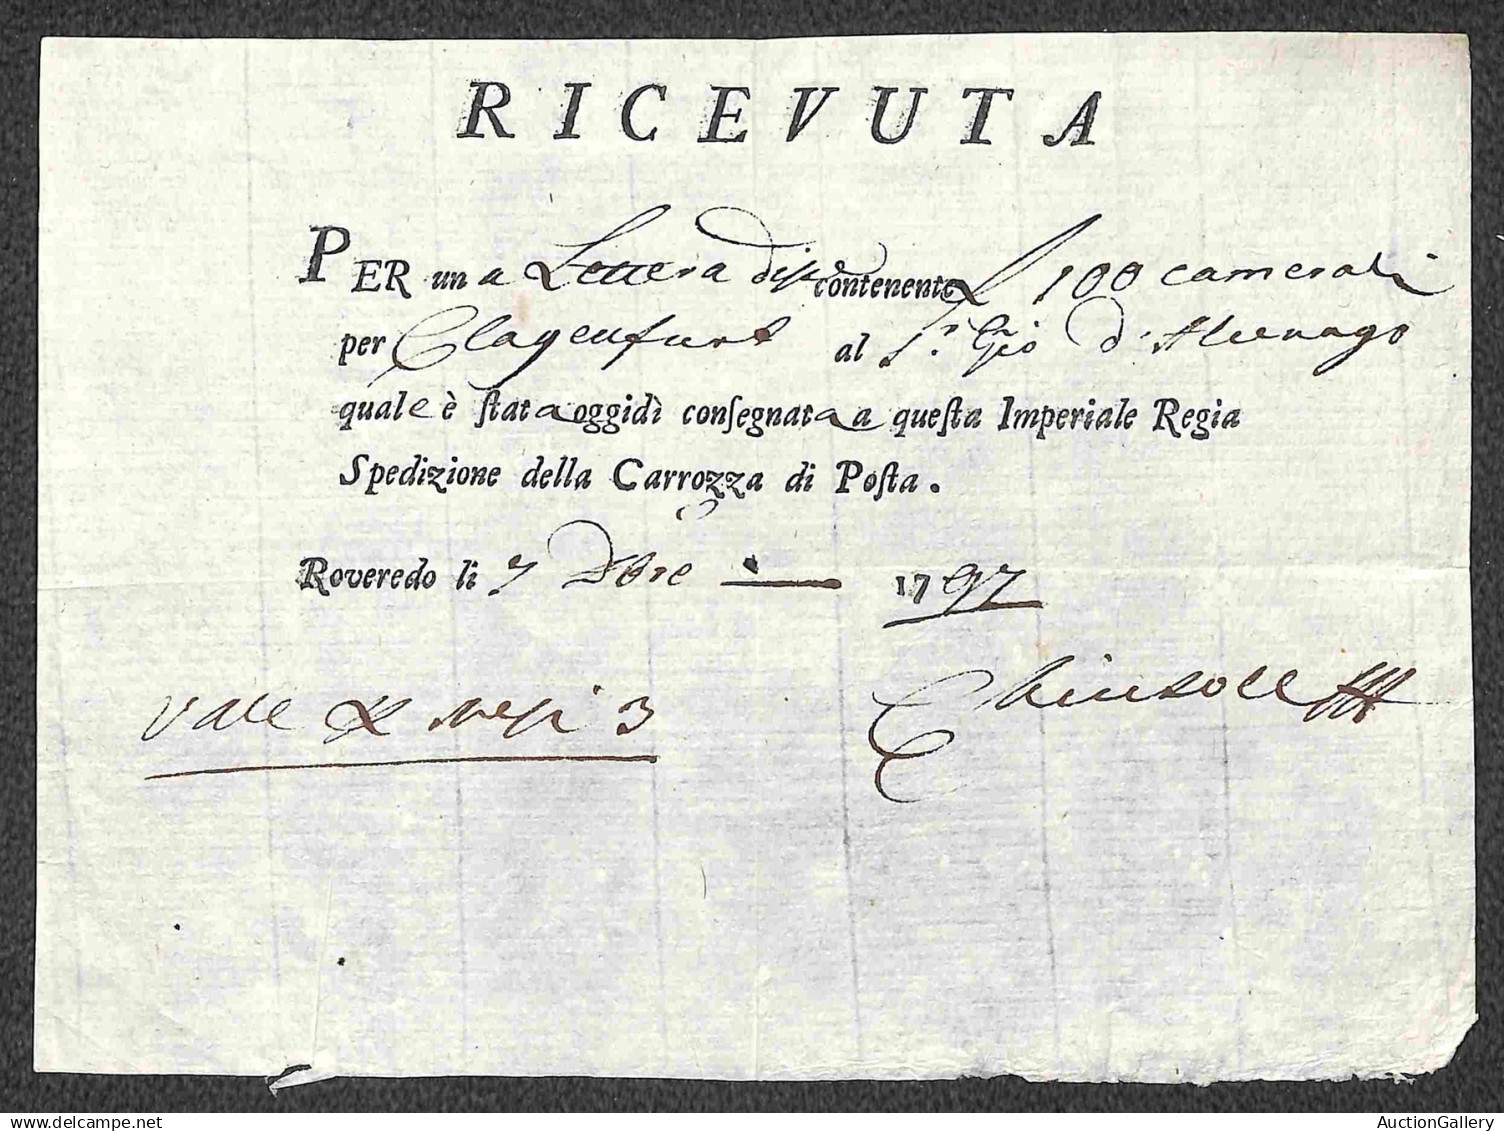 RICEVUTA
PER una Lettera contenente 100 camerali
per Clagenfurt al Sr. Gio d'
quale è ſtata oggidì conſegnata a queſta Imperiale Regia
Spedizione della Carrozza di Poſta.
Roveredo li 7 1797
Vale mesi 3
AuctionGallery